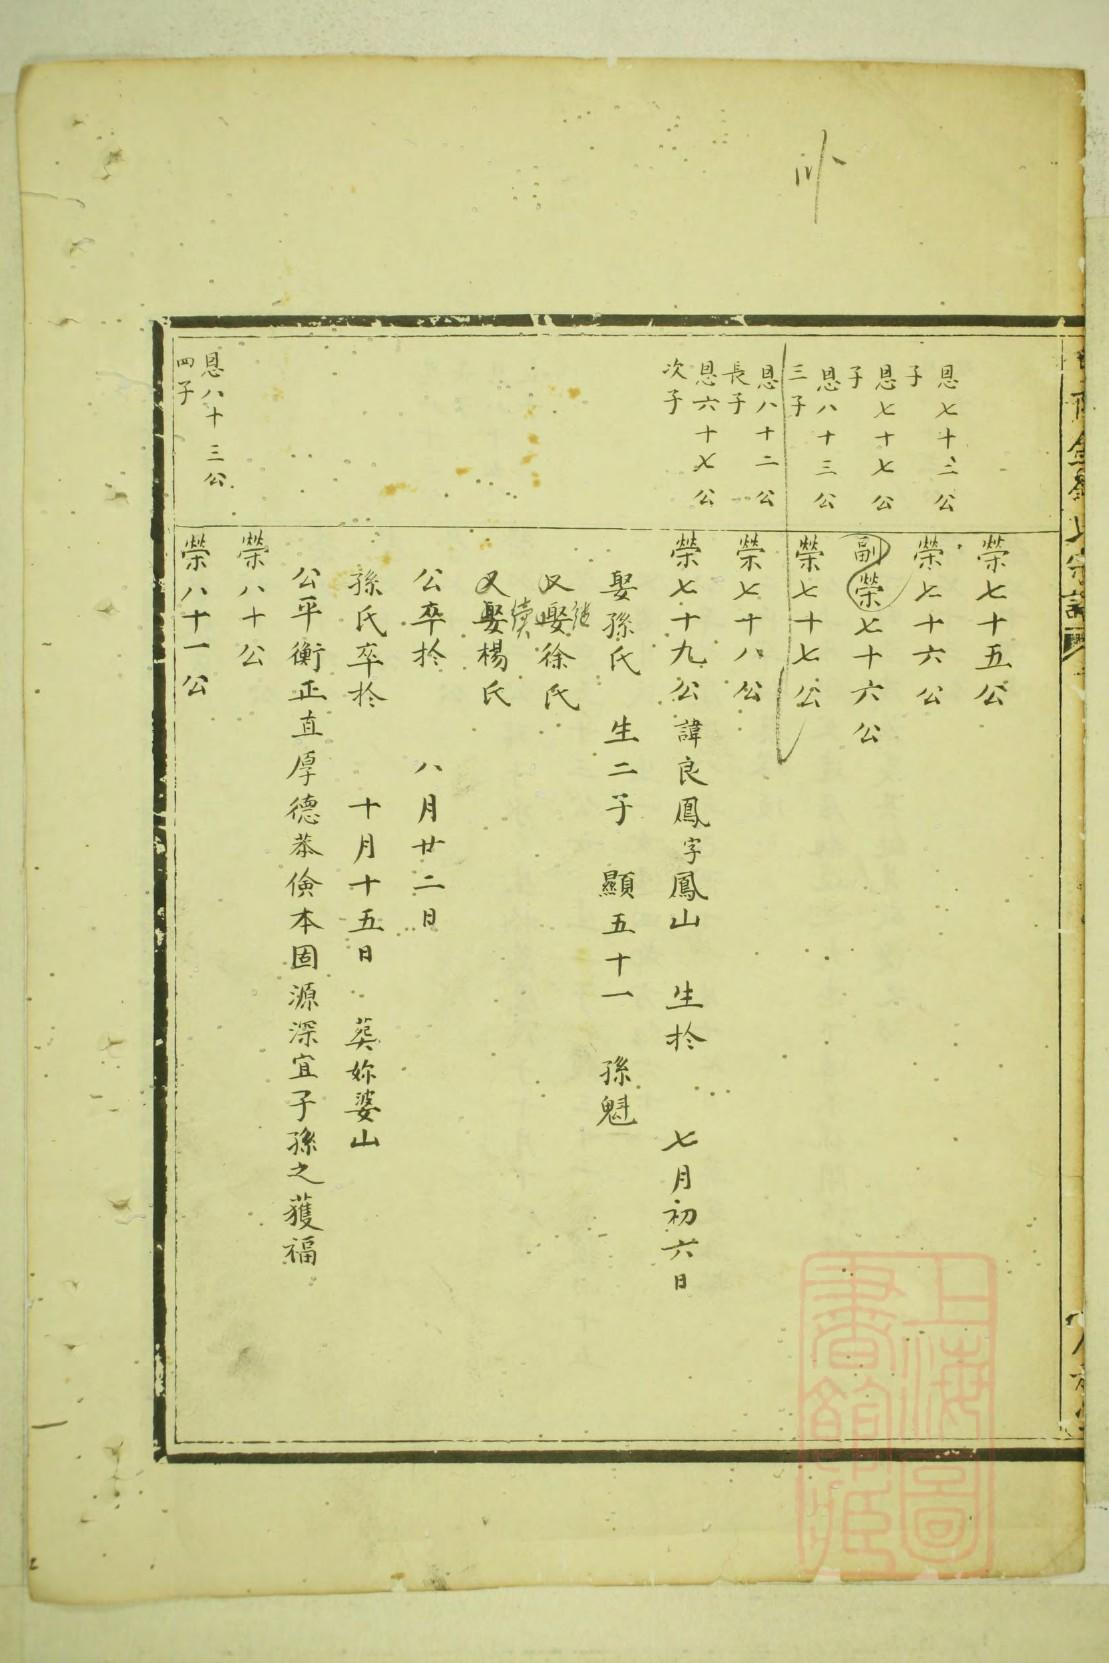 恩七十三公
子
榮七十五公
恩七十七公
子
榮七十六公
恩八十三公
三子
副榮七十六公
榮七十七公
恩八十二公
長子
榮七十八公
恩六十七公
次子
榮七十九公諱良鳳字鳳山 生於 七月初六日
娶孫氏 生二子 顯五十一 孫魁
又娶徐氏
續
又娶楊氏
公卒於 八月廿二日
孫氏卒於 十月十五日 葬妳婆山
公平衡正直厚德恭儉本固源深宜子孫之獲福
榮八十公
恩八十三公
四子
榮八十一公
氏宗譜
上海圖
書館藏